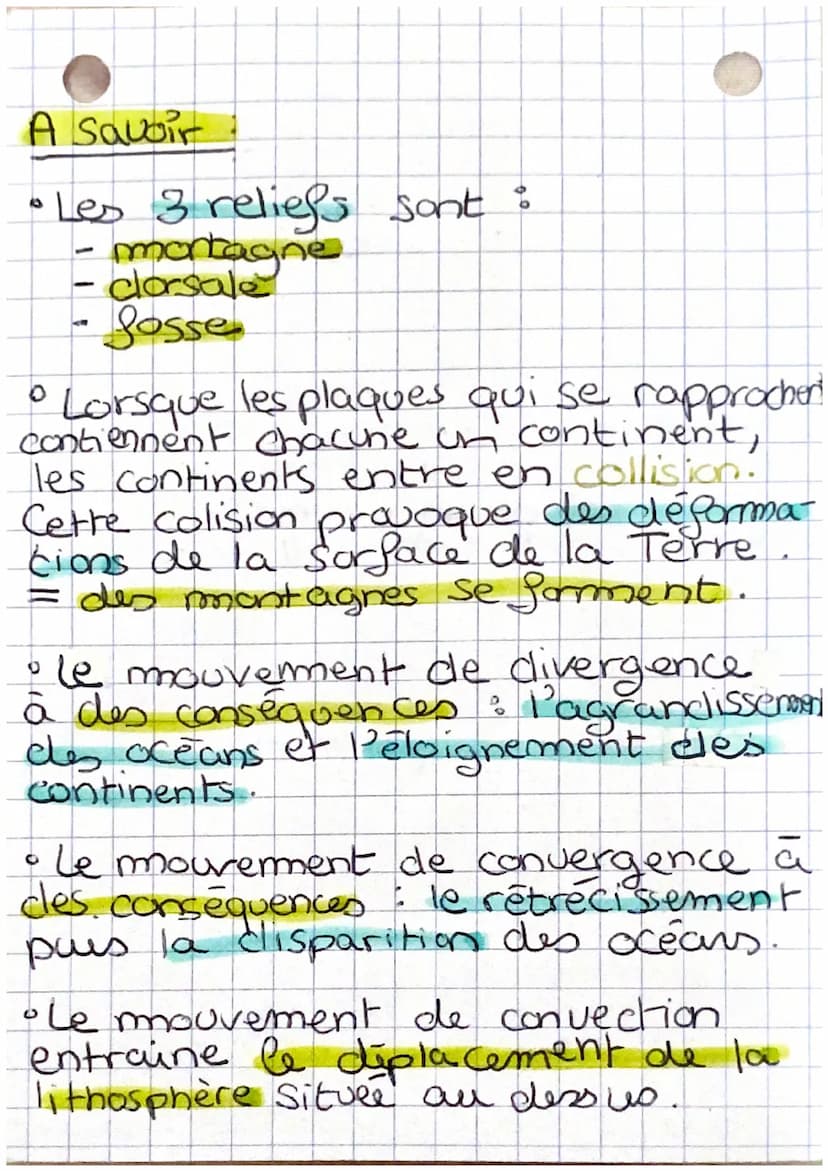 A savoir :
• Les 3 reliefs sont :
- montagne
- dorsale
- fosse
• Lorsque les plaques qui se rapprochent
contiennent chacune un continent,
les continents entre en collision.
Cette colision provoque des déforma-
tions de la surface de la Terre.
= des montagnes se forment.
• Le mouvement de divergence
à des conséquences : l'agrandissement
des océans et l'éloignement des
continents.
• Le mouvement de convergence à
des conséquences : le rétrécissement
puis la disparition des océans.
• Le mouvement de convection
entraine le déplacement de la
lithosphère située au dessus.